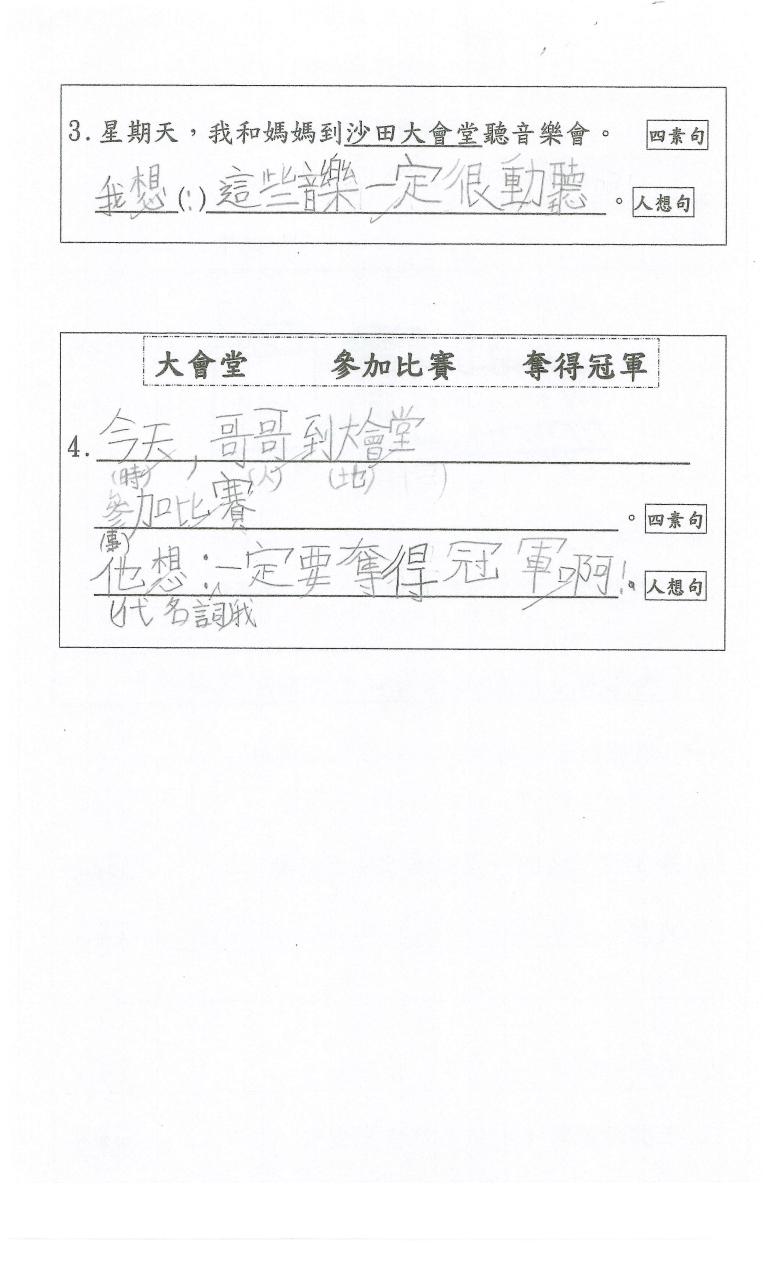 3. 星期天，我和媽媽到沙田大會堂聽音樂會。 四素句
我想(：)這些音樂一定很動聽。 人想句
大會堂 參加比賽 奪得冠軍
4. 今天，哥哥到大會堂
(時) (人) (地) ( )
參加比賽。 四素句
(事)
他想：一定要奪得冠軍啊！。 人想句
代名詞我